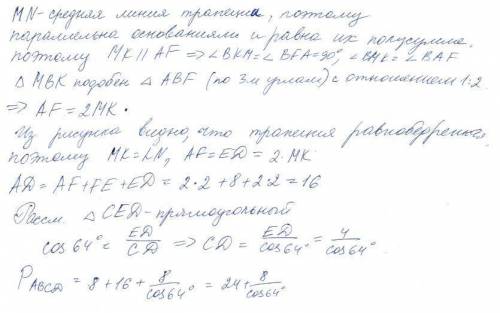 MN-средняя линия трапеции, поэтому
параллельна основаниями и равна их полусумме.
Поэтому MK || AF ⇒ ∠BKM = ∠BFA = 90°, ∠BMK = ∠BAF
△ MBK подобен △ ABF (по 3м углам) с отношением 1:2
⇒ AF = 2MK.
Из рисунка видно, что трапеция равнобедренная.
поэтому MK = LN, AF = ED = 2·MK
AD = AF + FE + ED = 2·2 + 8 + 2·2 = 16
Рассм. △ CED - прямоугольный
cos 64° = ED/CD ⇒ CD = ED/cos 64° = 4/cos 64°
P_ABCD = 8 + 16 + 8/cos 64° = 24 + 8/cos 64°